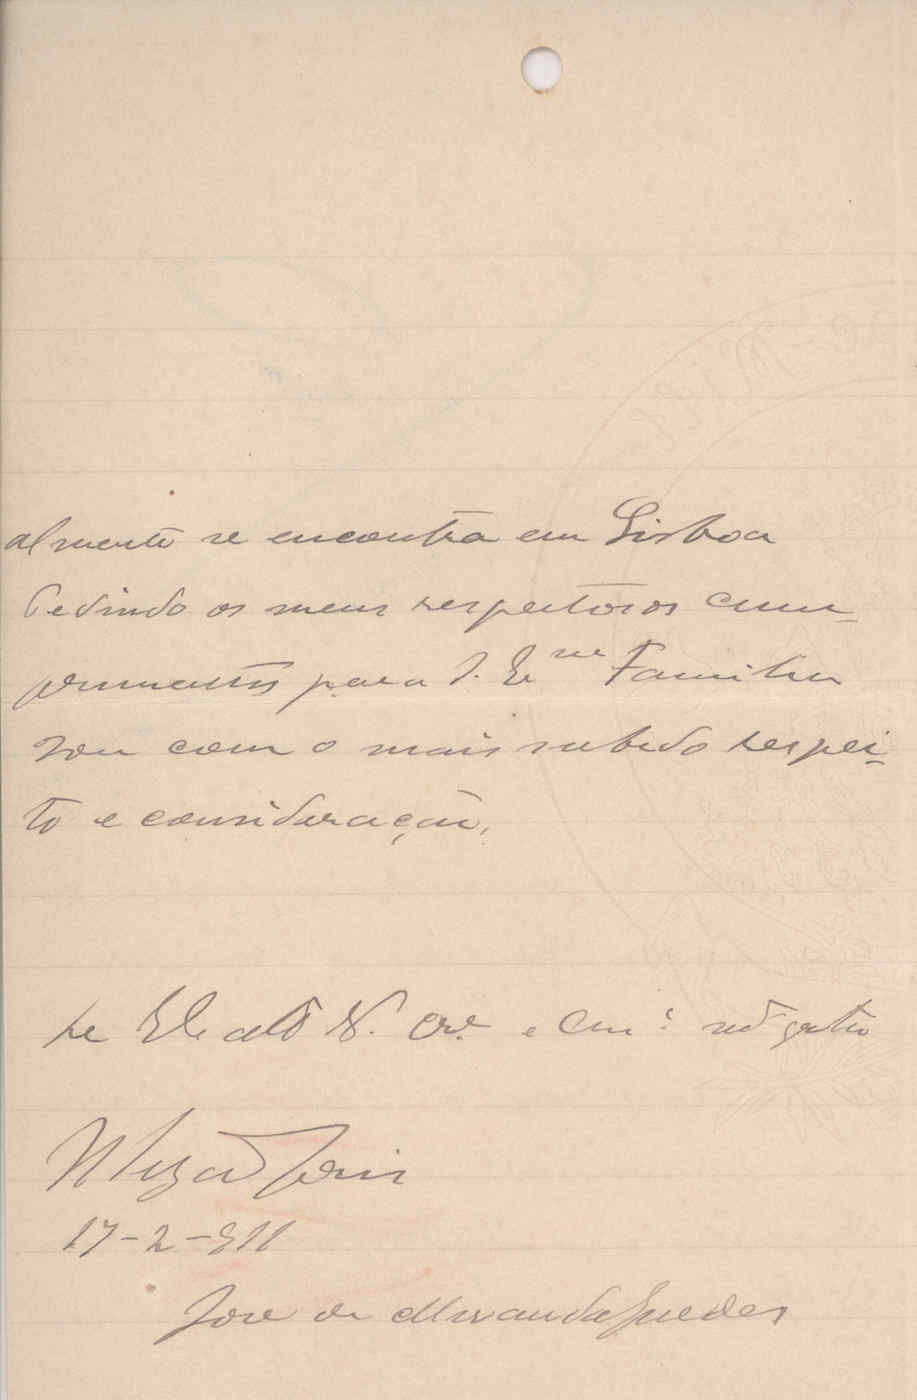 almente se encontra em Lisboa
Pedindo os meus respeitosos cum-
primentos para S. Ex.ma Familia
sou com o mais subido respei-
to e consideração,
De V. Ex.
17-2-911
José de Miranda Guedes